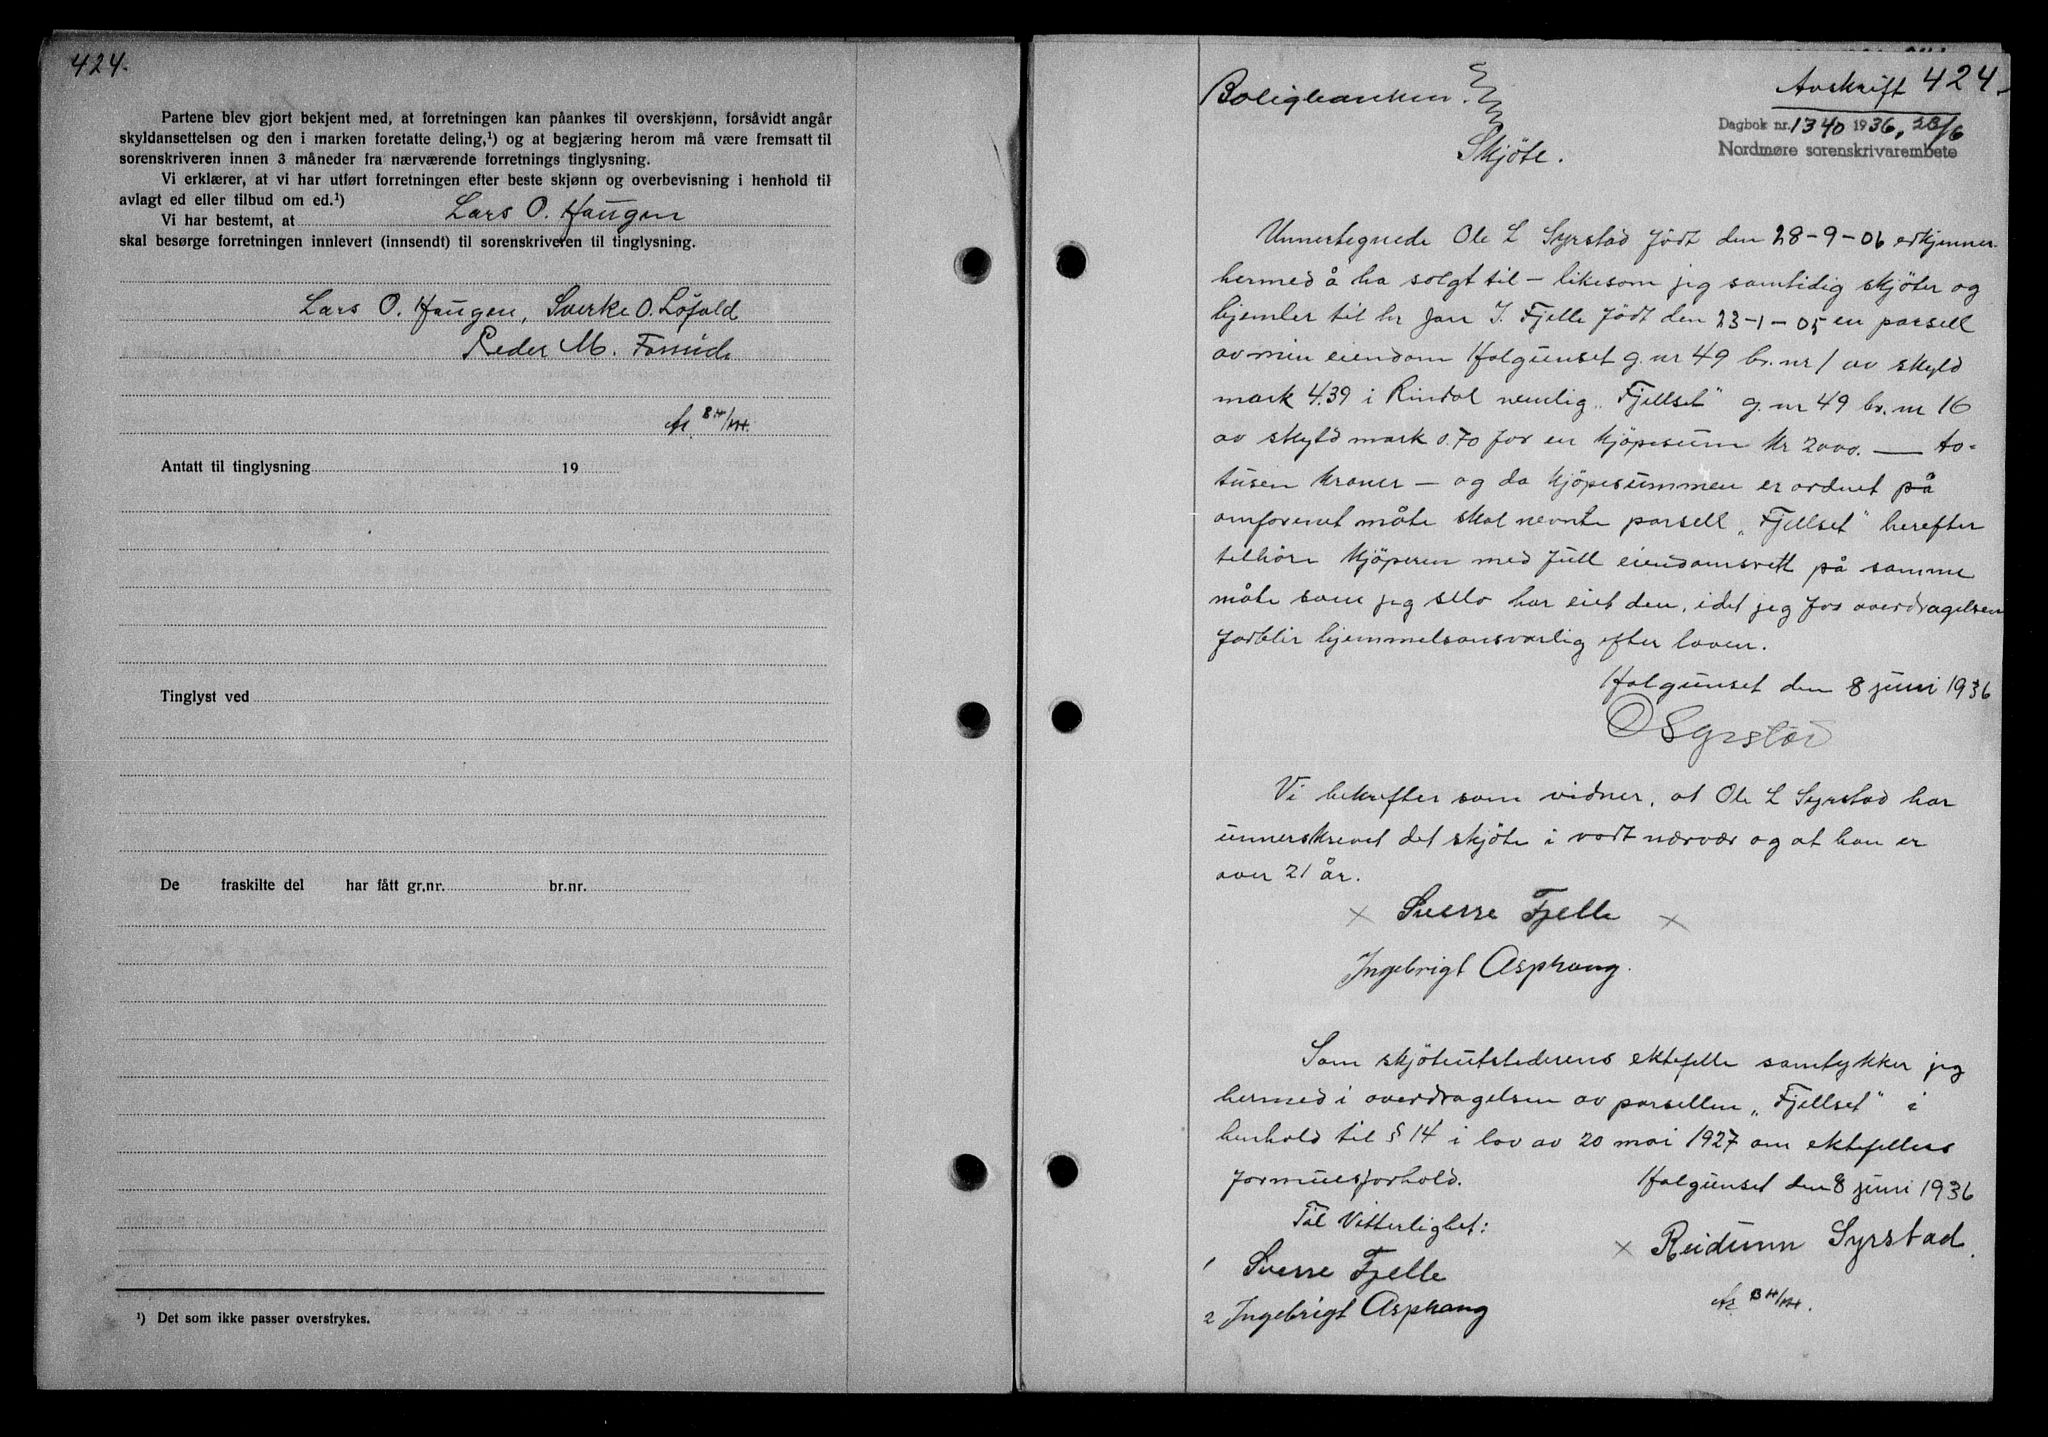 424.
Partene blev gjort bekjent med, at forretningen kan påankes til overskjønn, forsåvidt angår
skyldansettelsen og den i marken foretatte deling,¹) og at begjæring herom må være fremsatt til
sorenskriveren innen 3 måneder fra nærværende forretnings tinglysning.
Vi erklærer, at vi har utført forretningen efter beste skjønn og overbevisning i henhold til
avlagt ed eller tilbud om ed.¹)
Vi har bestemt, at Lars O. Haugen
skal besørge forretningen innlevert (innsendt) til sorenskriveren til tinglysning.
Lars O. Haugen, Sverke O. Løfald
Peder M.
Antatt til tinglysning 19
Tinglyst ved
De fraskilte del har fått gr.nr. br.nr.
¹) Det som ikke passer overstrykes.
Avskrift 424.
Boligbanken.
Dagbok nr. 1340 1936, 23/6
Nordmøre sorenskrivarembete
Skjöte.
Unnertegnede Ole L Syrstad født den 28-9-06 erkjenner
hermed å ha solgt til - likesom jeg samtidig skjöter og
hjemler til hr Jon I. Fjelle født den 23-1-05 en parsell
av min eiendom Holgunset g.nr 49 br.nr 1 av skyld
mark 4.39 i Rindal nemlig „Fjellset" g.nr 49 br.nr 16
av skyld mark 0.70 for en kjöpesum kr 2000. — to-
tusen kroner - og da kjöpesummen er ordnet på
omforenet måte skal nevnte parsell „Fjellset" herefter
tilhöre kjöperen med full eiendomsrett på samme
måte som jeg selv har eiet den, idet jeg for overdragelsen
forblir hjemmelsansvarlig efter loven.
Holgunset den 8 juni 1936
O Syrstad
Vi bekrefter som vidner, at Ole L Syrstad har
unnerskrevet det skjöte i vort nærvær og at han er
over 21 år.
× Sverre Fjelle ×
Ingebrigt Asphaug.
Som skjöteutstederens ektefelle samtykker jeg
hermed i overdragelsen av parsellen „Fjellset" i
henhold til § 14 i lov av 20 mai 1927 om ektefellers
formuesforhold. Holgunset den 8 juni 1936
Til Vitterlighet:
× Reidunn Syrstad.
1 Sverre Fjelle
2 Ingebrigt Asphaug